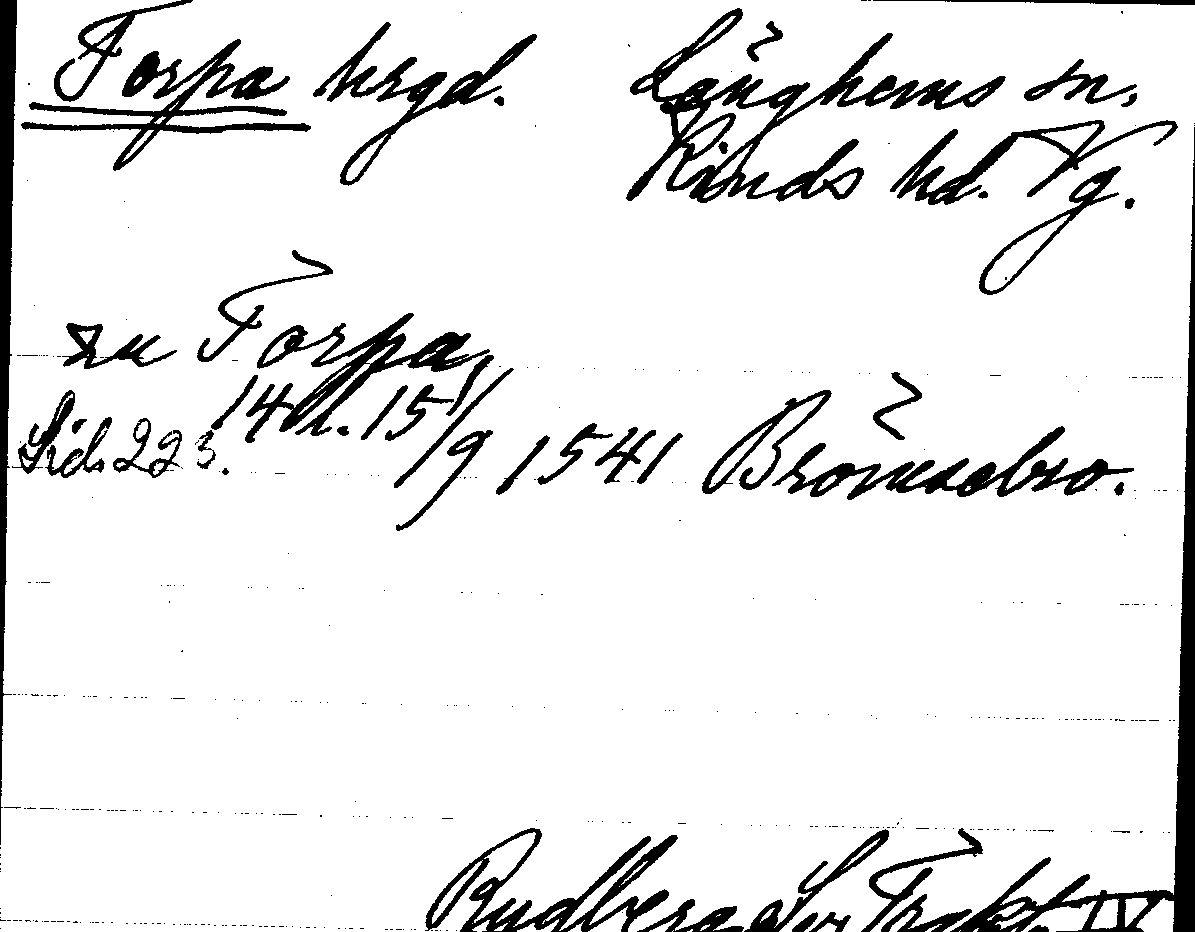 Torpa hrgd. Länghems sn.
Kinds hd. Vg.
zu Torpa,
Sid. 223. 14 h. 15 1/9 1541 Brömsebro.
Rudberg Sv Trakt. IV